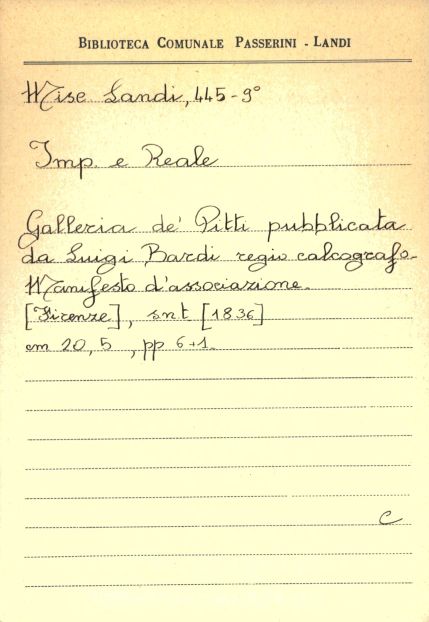 BIBLIOTECA COMUNALE PASSERINI - LANDI
Misc Landi, 445-9°
Imp. e Reale
Galleria de' Pitti pubblicata
da Luigi Bardi regio calcografo.
Manifesto d'associazione.
[Firenze], snt [1836]
cm 20,5, pp 6+1.
C